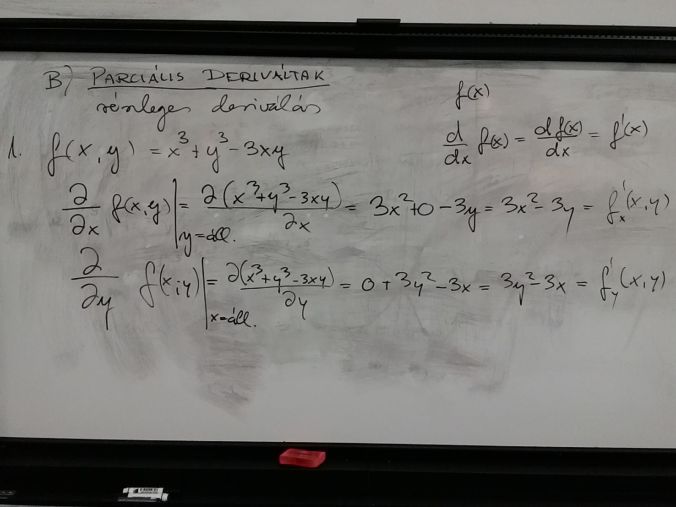 B) PARCIÁLIS DERIVÁLTAK
részleges deriválás
f(x)
d/dx f(x) = df(x)/dx = f'(x)
1. f(x,y) = x³ + y³ - 3xy
∂/∂x f(x,y)|y=áll. = ∂(x³+y³-3xy)/∂x = 3x²+0-3y = 3x²-3y = f'ₓ(x,y)
∂/∂y f(x,y)|x=áll. = ∂(x³+y³-3xy)/∂y = 0+3y²-3x = 3y²-3x = f'_y(x,y)